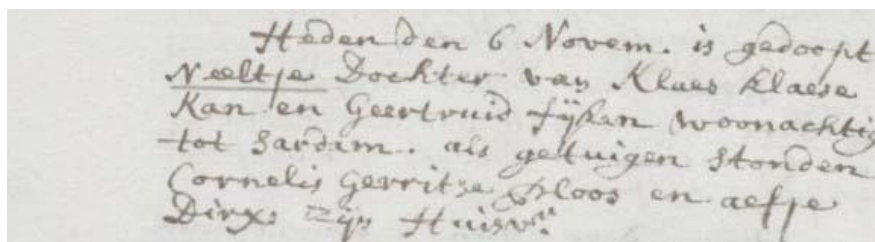 Heden den 6 Novem. is gedoopt
Neeltje Dochter van Klaes Klaese
Kan en Geertruid fijken woonachtig
tot Sardam. als getuigen stonden
Cornelis Gerritze Ploos en aefje
Dirx: zijn Huisvr: